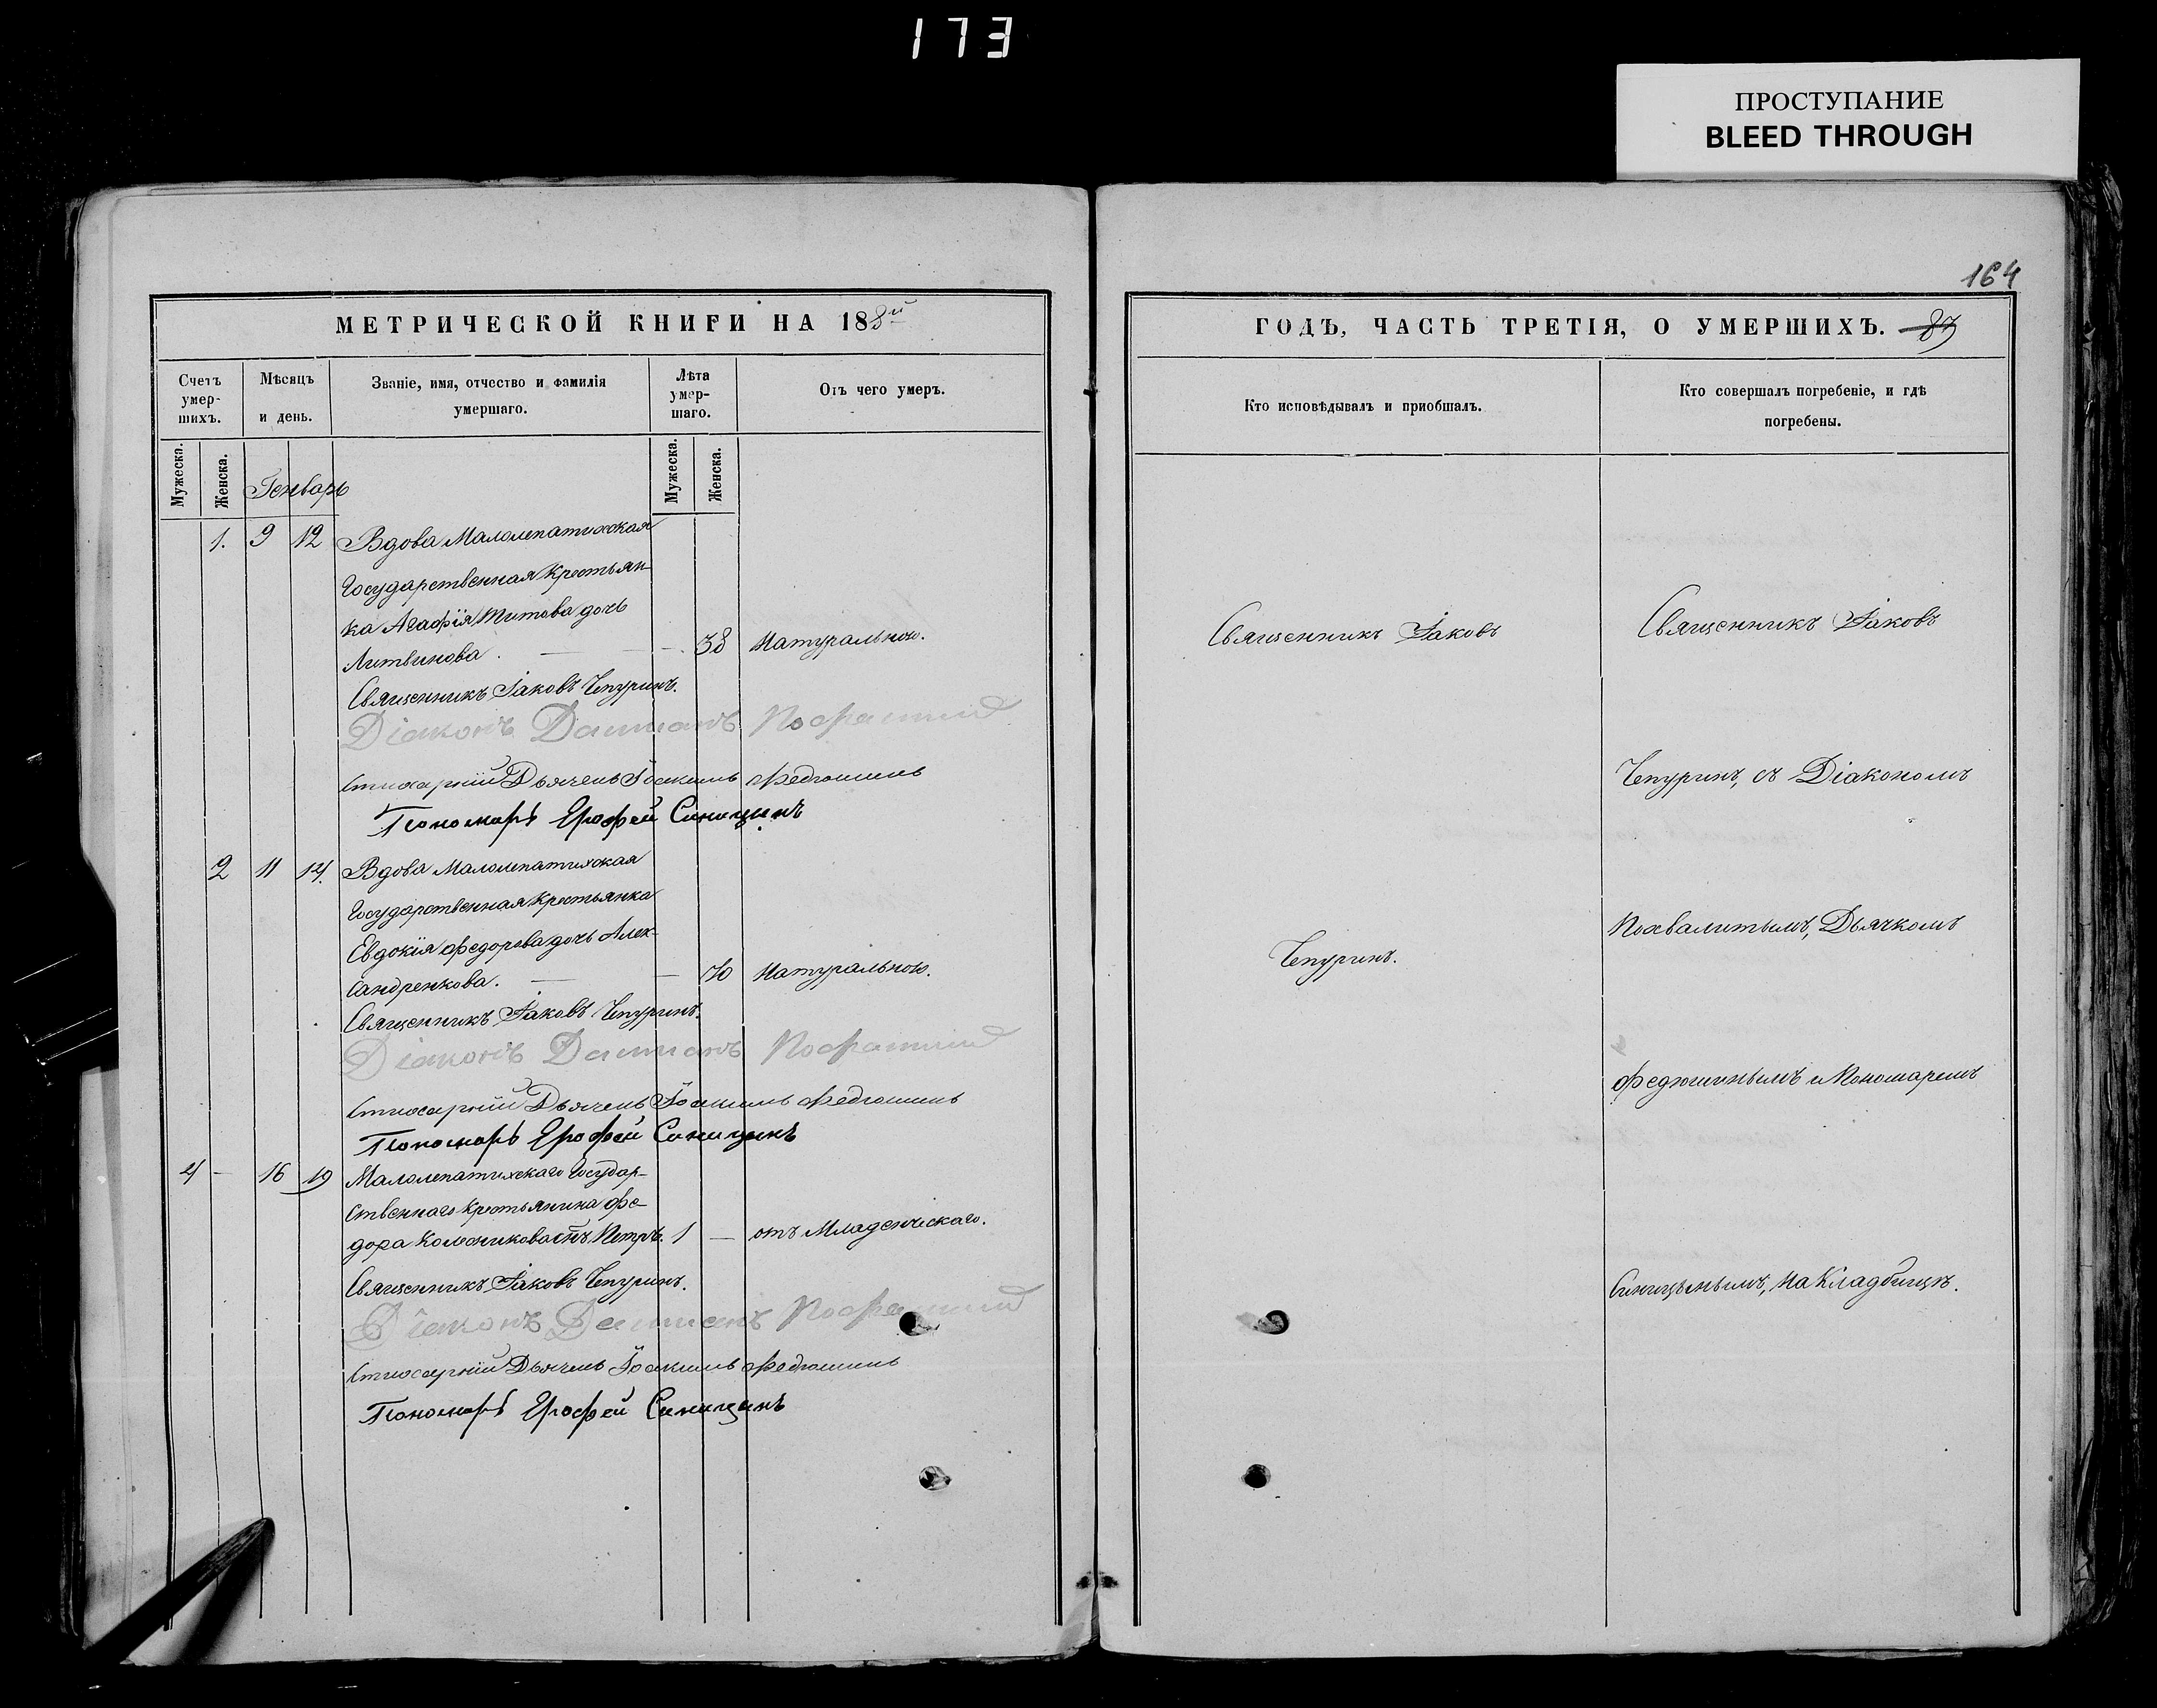 173
ПРОСТУПАНИЕ
BLEED THROUGH
164
МЕТРИЧЕСКОЙ КНИГИ НА 188й
Счетъ умер-шихъ.
Мѣсяцъ и день.
Званіе, имя, отчество и фамилія умершаго.
Лѣта умер-шаго.
Отъ чего умеръ.
Мужеска.
Женска.
Генварь
Мужеска.
Женска.
1. 9 12 Вдова Малолепатихская
Государственная крестьян-
ка Агафія Титова дочь
Литвинова. — 38 Натуральною.
Священникъ Іаковъ Чепуринъ.
Діаконъ Даміанъ
Стихарный Дьячекъ Іоакимъ Федюшинъ
Пономарь Ерофей Синицинъ
2 11 14. Вдова Малолепатихская
Государственная крестьянка
Евдокія Федорова дочь Алек-
сандренкова. — 70 Натуральною.
Священникъ Іаковъ Чепуринъ.
Діаконъ Даміанъ
Стихарный Дьячекъ Іоакимъ Федюшинъ
Пономарь Ерофей Синицинъ
4 — 16 19 Малолепатихскаго Государ-
ственнаго крестьянина Фе-
дора Колесникова сынъ Петръ. 1 — отъ Младенческаго.
Священникъ Іаковъ Чепуринъ.
Діаконъ Даміанъ
Стихарный Дьячекъ Іоакимъ Федюшинъ
Пономарь Ерофей Синицинъ
ГОДЪ, ЧАСТЬ ТРЕТІЯ, О УМЕРШИХЪ. 87
Кто исповѣдывалъ и приобщалъ.
Кто совершалъ погребеніе, и гдѣ погребены.
Священникъ Іаковъ
Чепуринъ.
Священникъ Іаковъ
Чепуринъ, съ Діакономъ
Похвалитымъ, Дьячкомъ
Федюшинымъ и Пономаремъ
Синицынымъ, на Кладбищѣ.